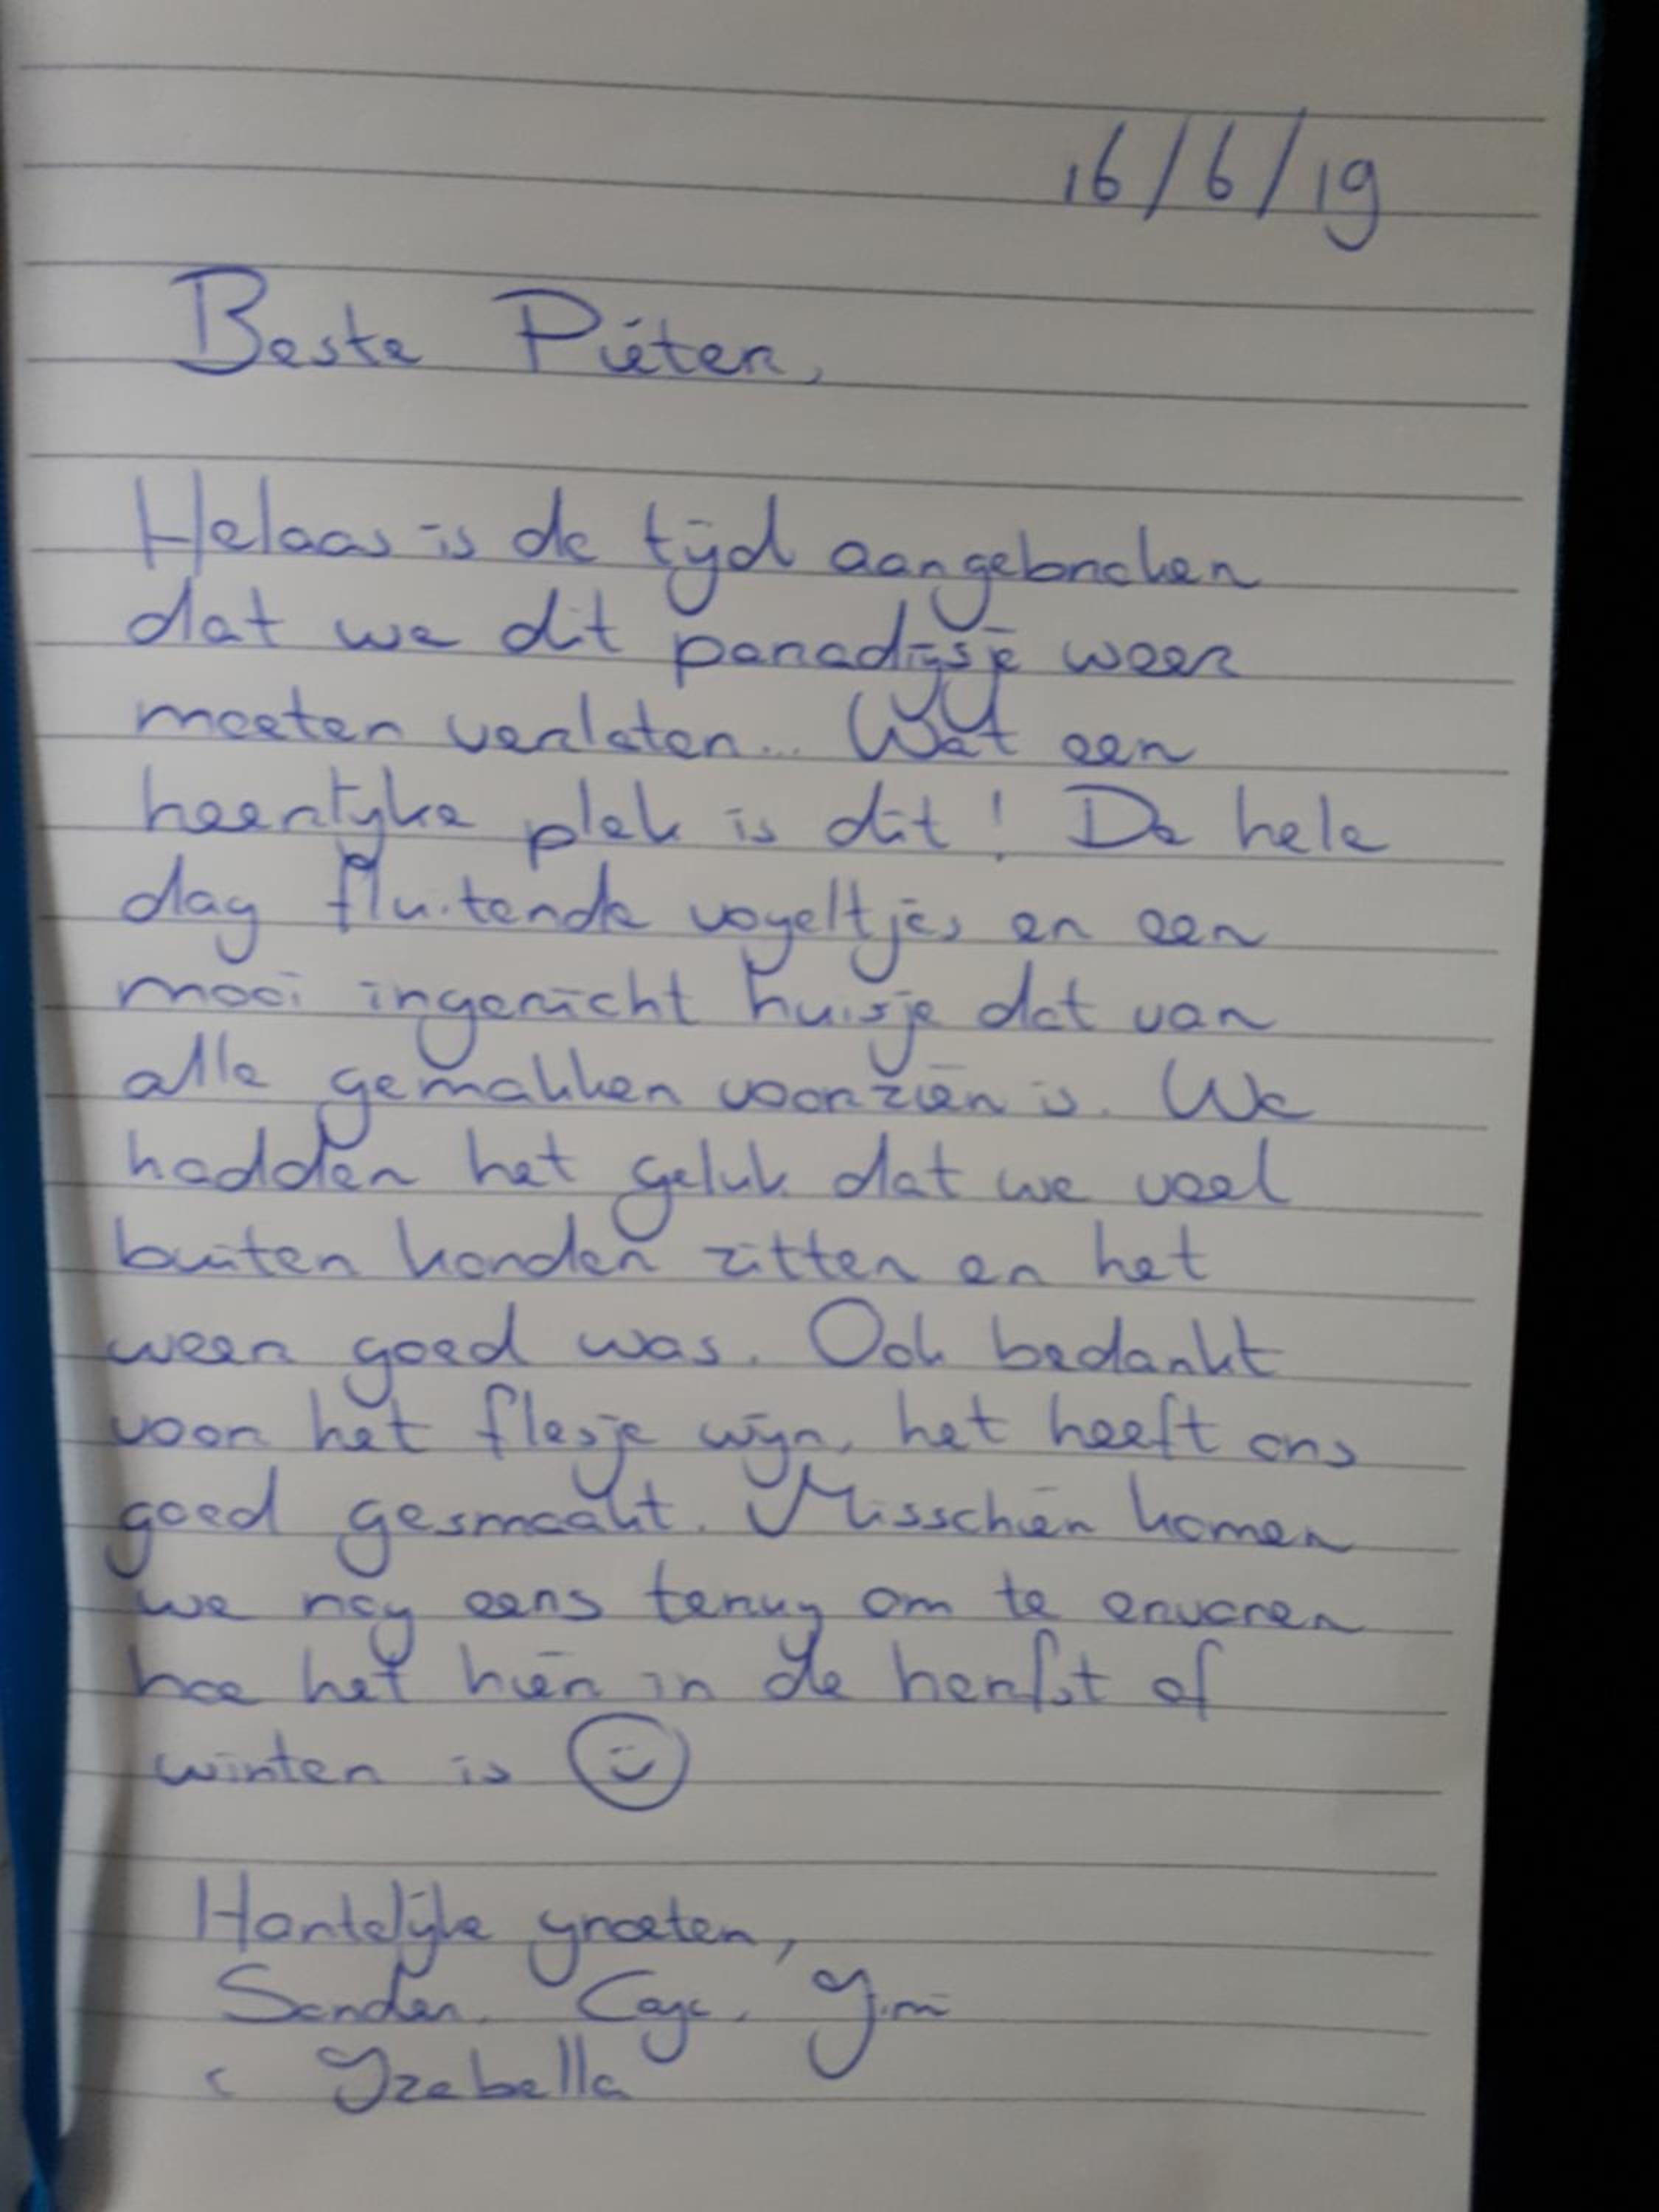 16/6/19
Beste Pieter,
Helaas is de tijd aangebroken
dat we dit paradijsje weer
moeten verlaten... Wat een
heerlijke plek is dit! De hele
dag fluitende vogeltjes en een
mooi ingericht huisje dat van
alle gemakken voorzien is. We
hadden het geluk dat we veel
buiten konden zitten en het
weer goed was. Ook bedankt
voor het flesje wijn, het heeft ons
goed gesmaakt. Misschien komen
we nog eens terug om te ervaren
hoe het hier in de herfst of
winter is
Hartelijke groeten,
Sander,
Izabella